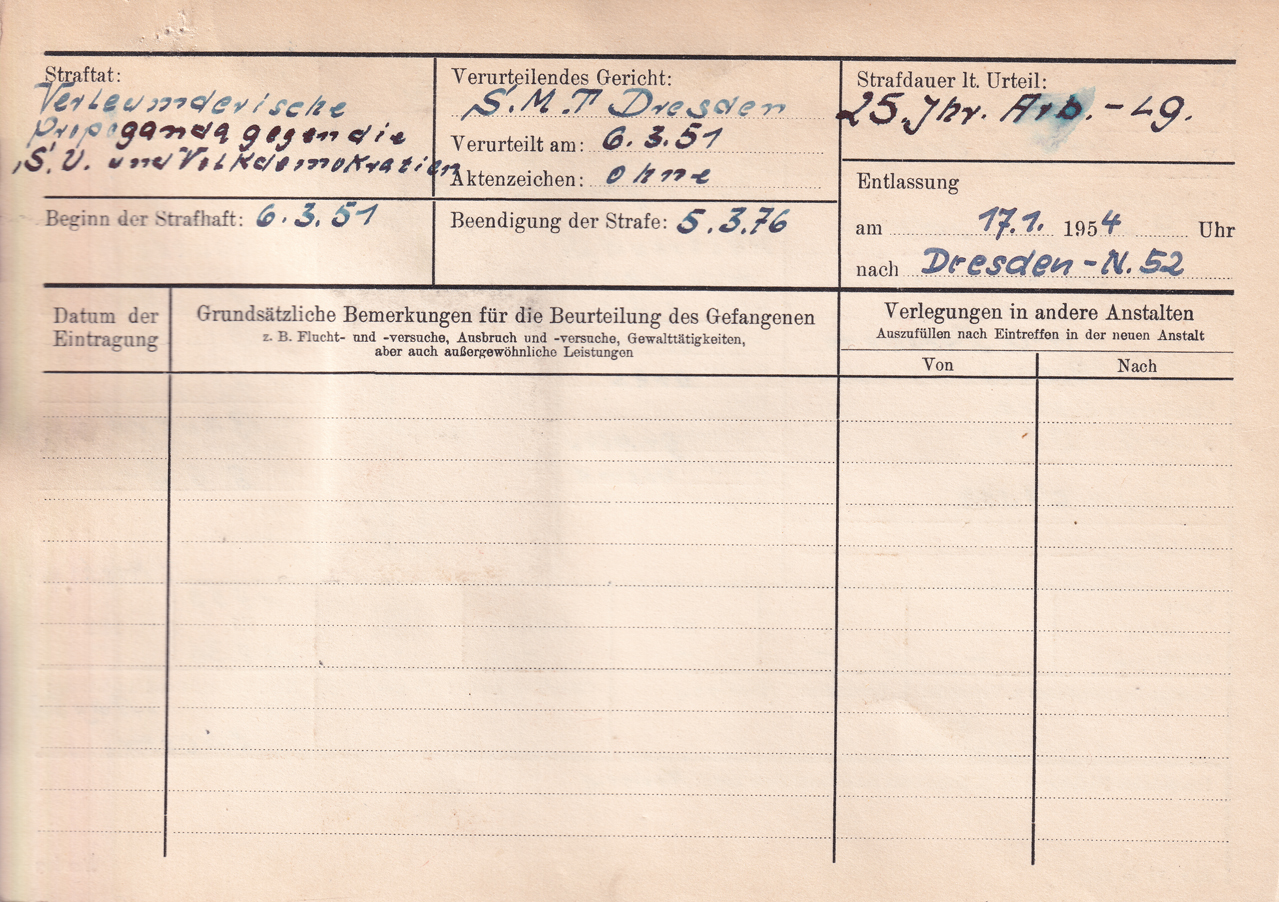 Straftat:
Verleumderische
Propoganda gegen die
S.U. und Volkdemokratien
Verurteilendes Gericht:
S.M.T Dresden
Verurteilt am: 6.3.51
Aktenzeichen: ohne
Strafdauer lt. Urteil:
25.Jhr. Arb.-Lg.
Beginn der Strafhaft: 6.3.51
Beendigung der Strafe: 5.3.76
Entlassung
am 17.1. 1954 Uhr
nach Dresden-N.52
Datum der
Eintragung
Grundsätzliche Bemerkungen für die Beurteilung des Gefangenen
z. B. Flucht- und -versuche, Ausbruch und -versuche, Gewalttätigkeiten,
aber auch außergewöhnliche Leistungen
Verlegungen in andere Anstalten
Auszufüllen nach Eintreffen in der neuen Anstalt
Von Nach